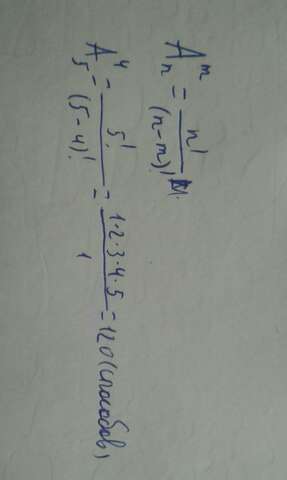 Aₙᵐ = n! / (n-m)!
A₅⁴ = 5! / (5-4)! = 1·2·3·4·5 / 1 = 120 (способов)